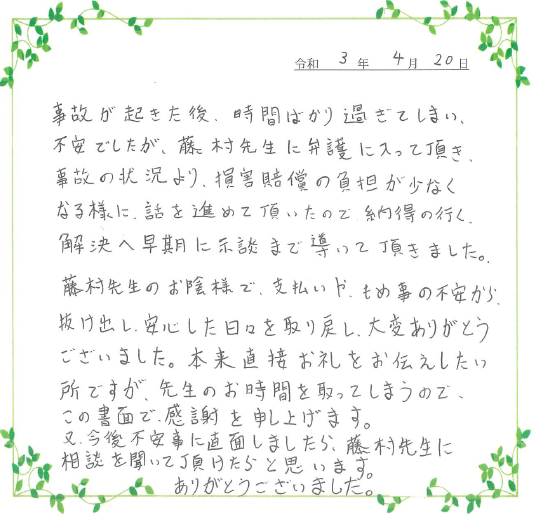 令和 3 年 4 月 20 日
事故が起きた後、時間ばかり過ぎてしまい、
不安でしたが、藤村先生に弁護に入って頂き、
事故の状況より、損害賠償の負担が少なく
なる様に、話を進めて頂いたので、納得の行く、
解決へ早期に示談まで導いて頂きました。
藤村先生のお陰様で、支払いや、もめ事の不安から、
抜け出し、安心した日々を取り戻し、大変ありがとう
ございました。本来直接お礼をお伝えしたい
所ですが、先生のお時間を取ってしまうので、
この書面で、感謝を申し上げます。
又、今後不安事に直面しましたら、藤村先生に
相談を聞いて頂けたらと思います。
ありがとうございました。